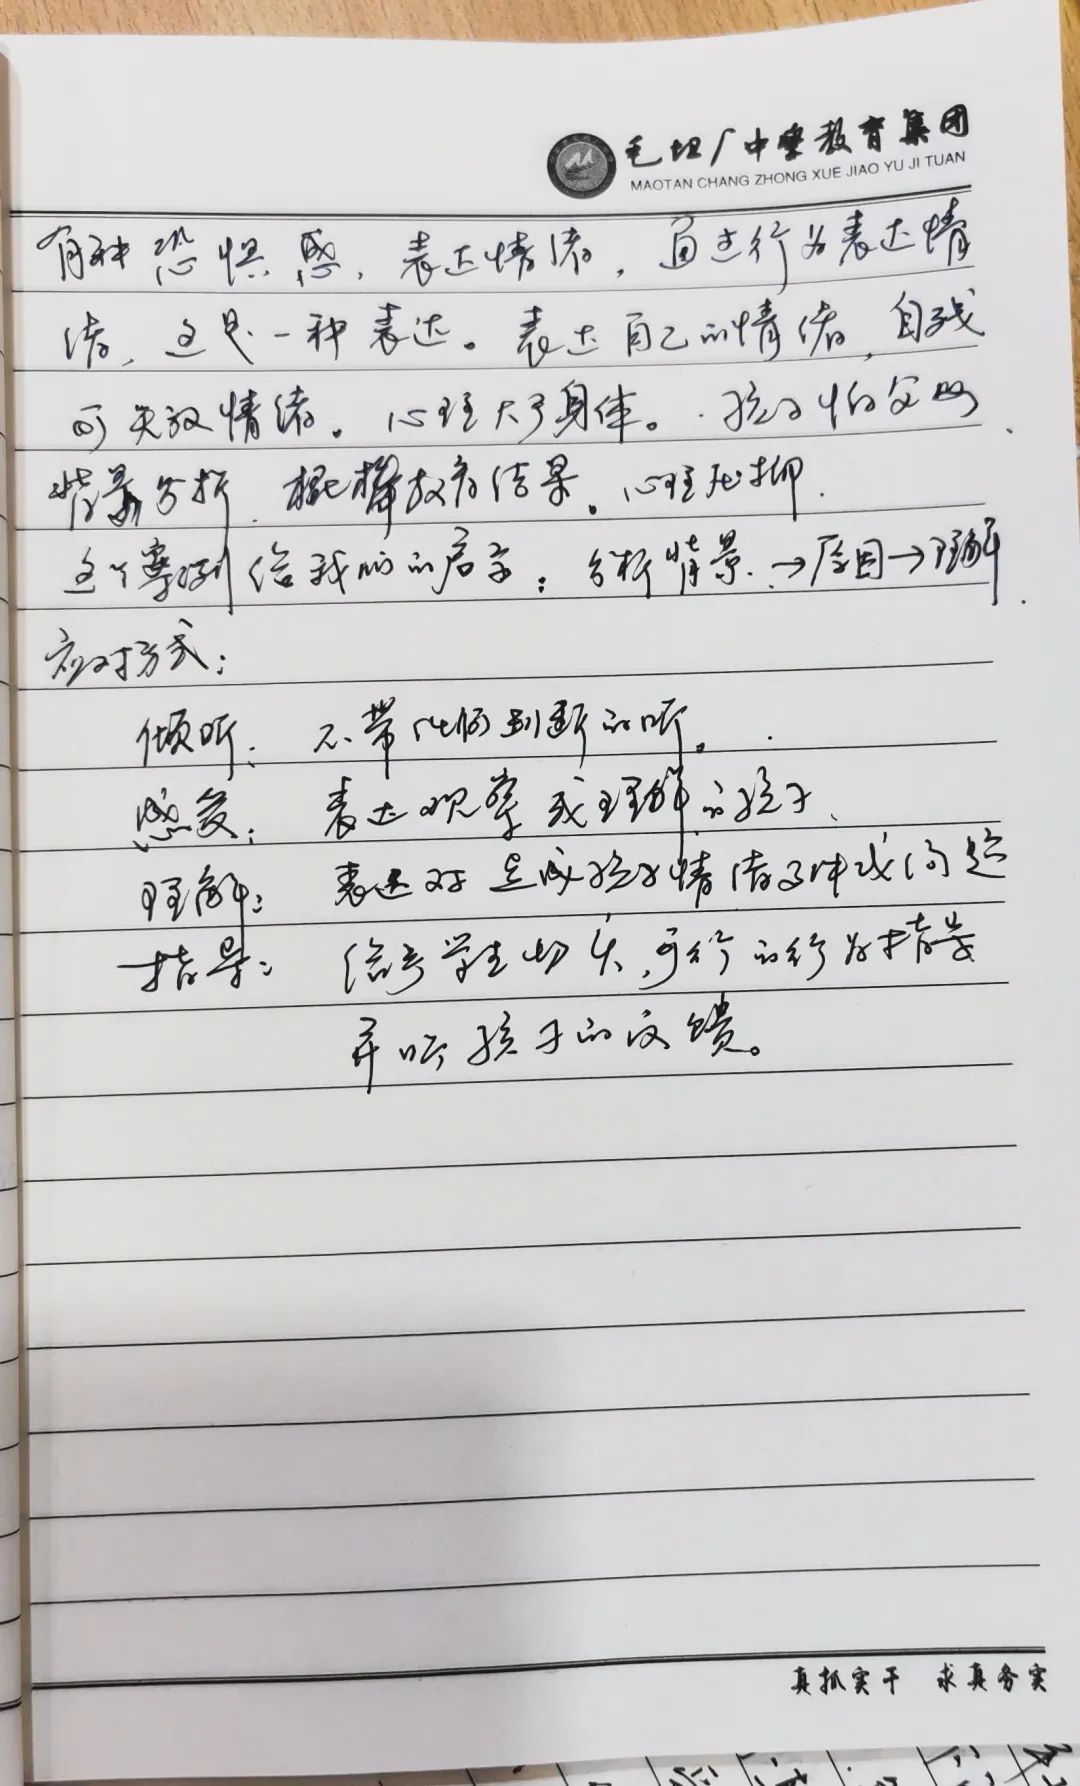 毛坦厂中学教育集团
MAOTAN CHANG ZHONG XUE JIAO YU JI TUAN
有种恐惧感，表达情绪，通过行为表达情
绪，这是一种表达。表达自己的情绪，自残
可失放情绪。心理大于身体。孩子怕父母
背景分析，棍棒教育结果。心理压抑.
这个案例给我们的启示：分析背景.→原因→理解.
应对方式：
倾听：不带 判断的听。
感受：表达观察或理解的孩子、
理解：表达对造成孩子情绪事件或问题
指导：给予学生切实，可行的行为指导
并听孩子的反馈。
真抓实干 求真务实